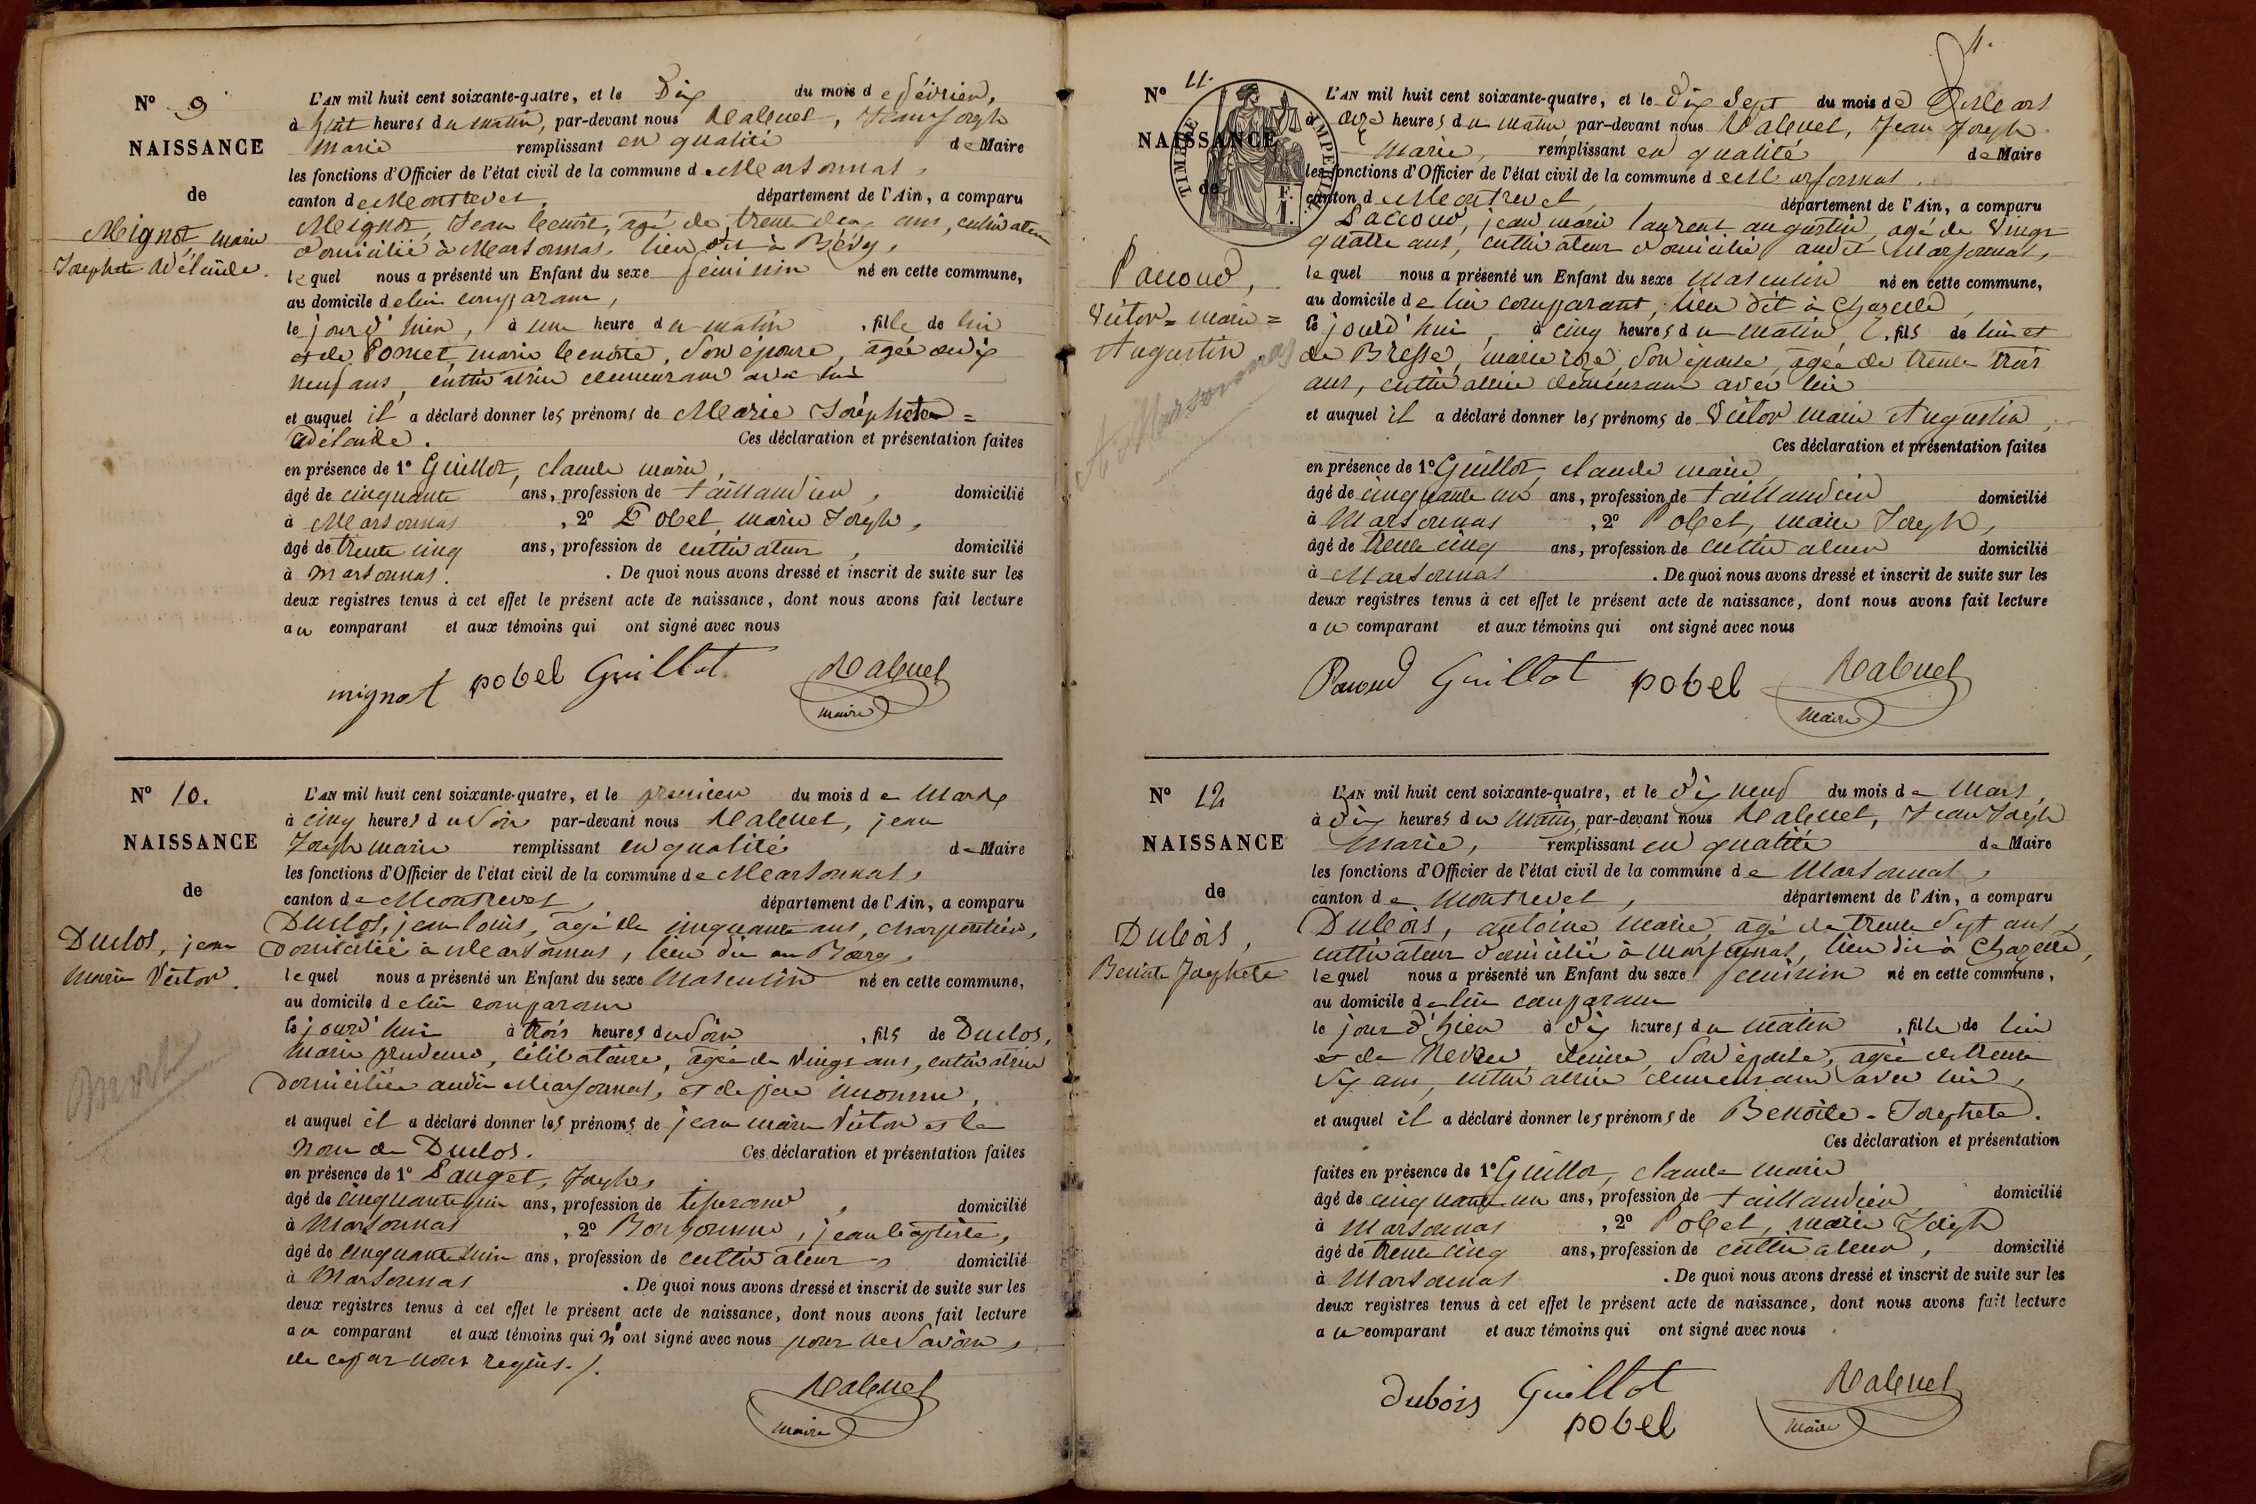 N° 9
NAISSANCE
de
Mignot, marie
Josephete Adélaïde.
L'AN mil huit cent soixante-quatre, et le Dix du mois de février,
à huit heures du matin, par-devant nous Rabuel, Jean Joseph
marie remplissant en qualité de Maire
les fonctions d'Officier de l'état civil de la commune de Marsonnas,
canton de Montrevel, département de l'Ain, a comparu
Mignot, Jean benoit, agé de trente deux ans, cultivateur
domicilié à Marsonnas, lieu dit à Bévy,
lequel nous a présenté un Enfant du sexe féminin né en cette commune,
au domicile de lui comparant,
le jour d'hier, à une heure du matin, fille de lui
et de Pomet, marie benoite, son épouse, agée de dix
neuf ans, cultivatrice demeurant avec lui
et auquel il a déclaré donner les prénoms de Marie Joséphete =
adélaide. Ces déclaration et présentation faites
en présence de 1° Guillot, claude marie,
âgé de cinquante ans, profession de taillandier, domicilié
à Marsonnas, 2° Pobel, marie Joseph,
âgé de trente cinq ans, profession de cultivateur, domicilié
à Marsonnas. De quoi nous avons dressé et inscrit de suite sur les
deux registres tenus à cet effet le présent acte de naissance, dont nous avons fait lecture
au comparant et aux témoins qui ont signé avec nous
mignot pobel Guillot Rabuel
maire
N° 10.
NAISSANCE
de
Duclos, jean
marie Victor.
mort
L'AN mil huit cent soixante-quatre, et le premier du mois de Mars
à cinq heures du soir par-devant nous Rabuel, jean
Joseph marie remplissant en qualité de Maire
les fonctions d'Officier de l'état civil de la commune de Marsonnas,
canton de Montrevel, département de l'Ain, a comparu
Duclos, jean louis, agé de cinquante ans, charpentier,
domicilié à Marsonnas, lieu dit au Bourg,
lequel nous a présenté un Enfant du sexe Masculin né en cette commune,
au domicile de lui comparant
le jourd'hui à trois heures du soir, fils de Duclos,
marie prudence, célibataire, agée de vingt ans, cultivatrice
domiciliée audit Marsonnas, et de père inconnu,
et auquel il a déclaré donner les prénoms de jean marie Victor et le
nom de Duclos. Ces déclaration et présentation faites
en présence de 1° Pauget, Joseph,
âgé de cinquante ans, profession de tisserand, domicilié
à Marsonnas, 2° jean baptiste,
âgé de cinquante huit ans, profession de cultivateur, domicilié
à Marsonnas. De quoi nous avons dressé et inscrit de suite sur les
deux registres tenus à cet effet le présent acte de naissance, dont nous avons fait lecture
au comparant et aux témoins qui n'ont signé avec nous pour ne savoir,
de ce par nous requis./.
Rabuel
maire
11.
N° 11.
NAISSANCE
de
TIMBRE IMPERIAL
Paccoud,
Victor = marie =
Augustin.
A Marsonnas
L'AN mil huit cent soixante-quatre, et le dix sept du mois de Mars
à onze heures du matin par-devant nous Rabuel, Jean Joseph
marie, remplissant en qualité de Maire
les fonctions d'Officier de l'état civil de la commune de Marsonnas.
canton de Montrevel, département de l'Ain, a comparu
Paccoud, jean marie laurent augustin, agé de vingt
quatre ans, cultivateur domicilié audit Marsonnas,
lequel nous a présenté un Enfant du sexe masculin né en cette commune,
au domicile de lui comparant, lieu dit à Chazelle,
le jourd'hui, à cinq heures du matin, fils de lui et
de Bresse, marie rose, son épouse, agée de trente trois
ans, cultivatrice demeurant avec lui
et auquel il a déclaré donner les prénoms de Victor marie Augustin,
Ces déclaration et présentation faites
en présence de 1° Guillot, claude marie,
âgé de cinquante un ans, profession de taillandier domicilié
à Marsonnas, 2° Pobel, marie Joseph,
âgé de trente cinq ans, profession de cultivateur domicilié
à Marsonnas. De quoi nous avons dressé et inscrit de suite sur les
deux registres tenus à cet effet le présent acte de naissance, dont nous avons fait lecture
au comparant et aux témoins qui ont signé avec nous
Paccoud Guillot pobel Rabuel
Maire
N° 12
NAISSANCE
de
Dubois,
Benoite Josephete
L'AN mil huit cent soixante-quatre, et le dix neuf du mois de Mars,
à dix heures du matin, par-devant nous Rabuel, Jean Joseph
Marie, remplissant en qualité de Maire
les fonctions d'Officier de l'état civil de la commune de Marsonnas,
canton de Montrevel, département de l'Ain, a comparu
Dubois, antoine marie, agé de trente sept ans,
cultivateur domicilié à Marsonnas, lieu dit à Chazelle,
lequel nous a présenté un Enfant du sexe féminin né en cette commune,
au domicile de lui comparant
le jour d'hier à dix heures du matin, fille de lui
et de son épouse, agée de trente
six ans, cultivatrice demeurant avec lui,
et auquel il a déclaré donner les prénoms de Benoite - Josephete.
Ces déclaration et présentation
faites en présence de 1° Guillot, claude marie
âgé de cinquante un ans, profession de taillandier, domicilié
à Marsonnas, 2° Pobel, marie Joseph
âgé de trente cinq ans, profession de cultivateur, domicilié
à Marsonnas. De quoi nous avons dressé et inscrit de suite sur les
deux registres tenus à cet effet le présent acte de naissance, dont nous avons fait lecture
au comparant et aux témoins qui ont signé avec nous.
dubois Guillot Rabuel
pobel maire